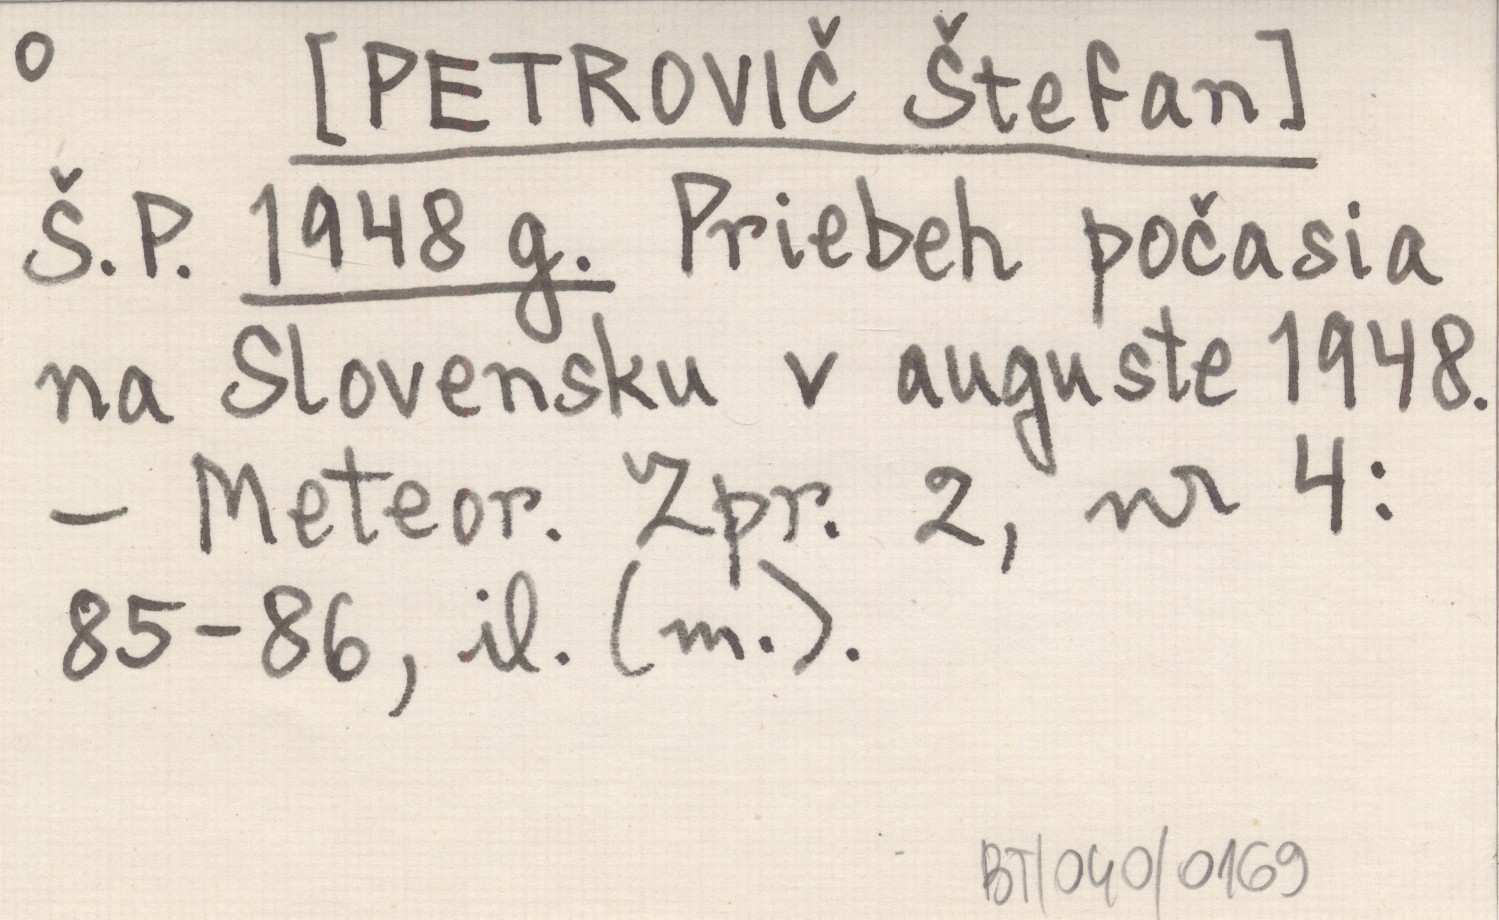 o [PETROVIČ Štefan]
Š.P. 1948 g. Priebeh počasia
na Slovensku v auguste 1948.
- Meteor. Zpr. 2, nr 4:
85-86, il. (m.).
BT/040/0169